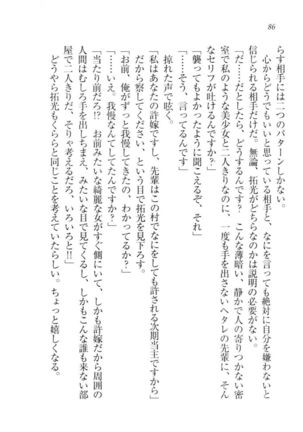 86
らす相手には二つのパターンしかない。
心からどうでもいいと思っている相手と、なにを言っても絶対に自分を嫌わないと
信じられる相手だけだ。無論、拓光がどちらなのかは説明の必要がない。
「だ……だとしたら、どうするんです? こんな薄暗い、静かで人の寄りつかない密
室で私のような美少女と二人きりなのに、一度も手を出さないヘタレの先輩に、そん
なセリフが吐けるんですか?」
「襲ってもよかったように聞こえるぞ、それ」
「……そう、言ってるんです」
掠れた声で呟く。
「私はあなたの許嫁ですし、先輩はこの村でなにをしても許される次期当主ですから」
だから察してください、という目で拓光を見下ろす。
「お前、俺がずっと我慢してきたの、わかってるか?」
「……いえ。我慢なんてしてたんですか?」
「当たり前だろ!? お前みたいな綺麗な女がすぐ側にいて、しかも許嫁だから周囲の
人間はむしろ手を出しちまえ、みたいな目で見てくるし、しかもこんな誰も来ない部
屋で二人きりだぞ、そりゃ考えるだろ、いろいろと!!」
どうやら拓光もくららと同じことを考えていたらしい。ちょっと嬉しくなる。